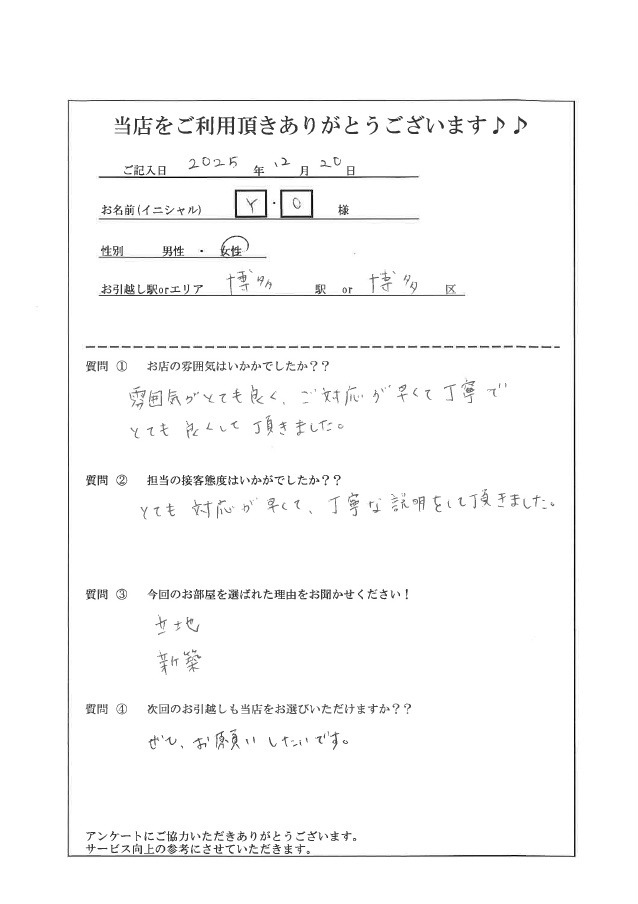 当店をご利用頂きありがとうございます♪♪
ご記入日 2025 年 12 月 20 日
お名前(イニシャル) Y ・ O 様
性別 男性 ・ 女性
お引越し駅orエリア 博多 駅 or 博多 区
質問 ① お店の雰囲気はいかかでしたか？？
雰囲気がとても良く、ご対応が早くて丁寧で
とても良くして頂きました。
質問 ② 担当の接客態度はいかがでしたか？？
とても対応が早くて、丁寧な説明をして頂きました。
質問 ③ 今回のお部屋を選ばれた理由をお聞かせください！
立地
新築
質問 ④ 次回のお引越しも当店をお選びいただけますか？？
ぜひ、お願いしたいです。
アンケートにご協力いただきありがとうございます。
サービス向上の参考にさせていただきます。